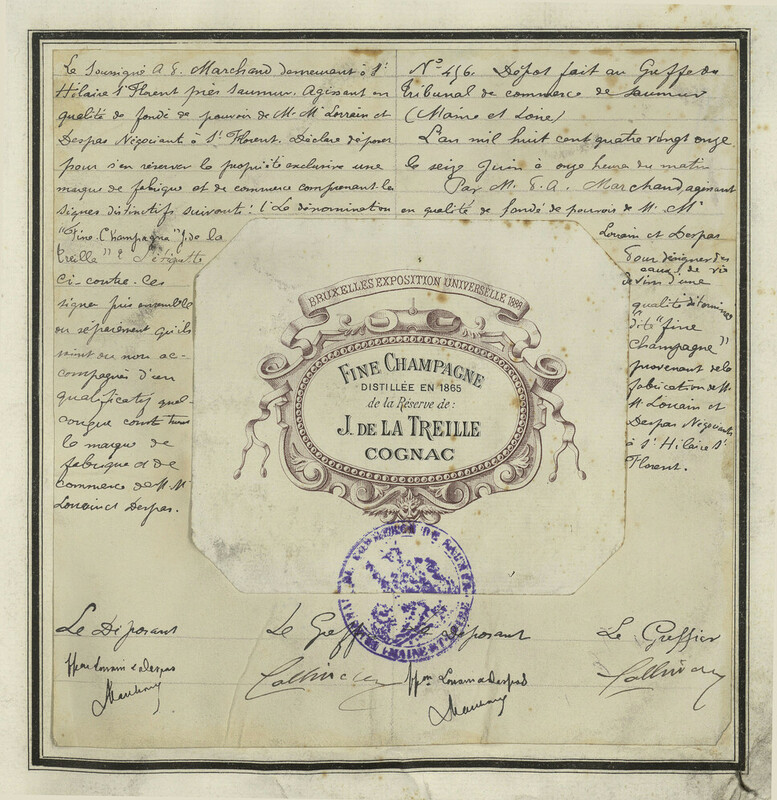 Le Soussigné A E. Marchand demeurant à St
Hilaire St Florent près Saumur. Agissant en
qualité de fondé de pouvoir de M. Mrs Lorrain et
Despas Négociants à St Florent. Déclare déposer
pour s'en réserver la propriété exclusive une
marque de fabrique et de commerce comprenant les
signes distinctifs suivants: 1° La dénomination
"Fine. Champagne" J. de la
treille" 2° l'étiquette
ci-contre. Ces
signes pris ensemble
ou séparément qu'ils
soient ou non ac-
compagnés d'un
qualificatif quel-
conque constituent
la marque de
fabrique et de
commerce de M. Mrs
Lorrain et Despas.
No 456. Dépot fait au Greffe du
tribunal de commerce de Saumur
(Maine et Loire)
L'an mil huit cent quatre vingt onze
le seize Juin à onze heures du matin
Par M. E. A. Marchand, agissant
en qualité de fondé de pouvoir de M. Mrs
Lorrain et Despas
Pour désigner des
eaux de vie
de vin d'une
qualité déterminée
dite "fine
Champagne"
provenant de la
fabrication de M.
M. Lorrain et
Despas Négociants
à St Hilaire St
Florent.
BRUXELLES EXPOSITION UNIVERSELLE 1888
FINE CHAMPAGNE
DISTILLÉE EN 1865
de la Réserve de:
J. DE LA TREILLE
COGNAC
DE COMMERCE DE SAUMUR
MAINE ET LOIRE
Le Déposant
Le Greffier
Le Déposant
Le Greffier
Lorrain et Despas
Marchand
Lorrain et Despas
Marchand